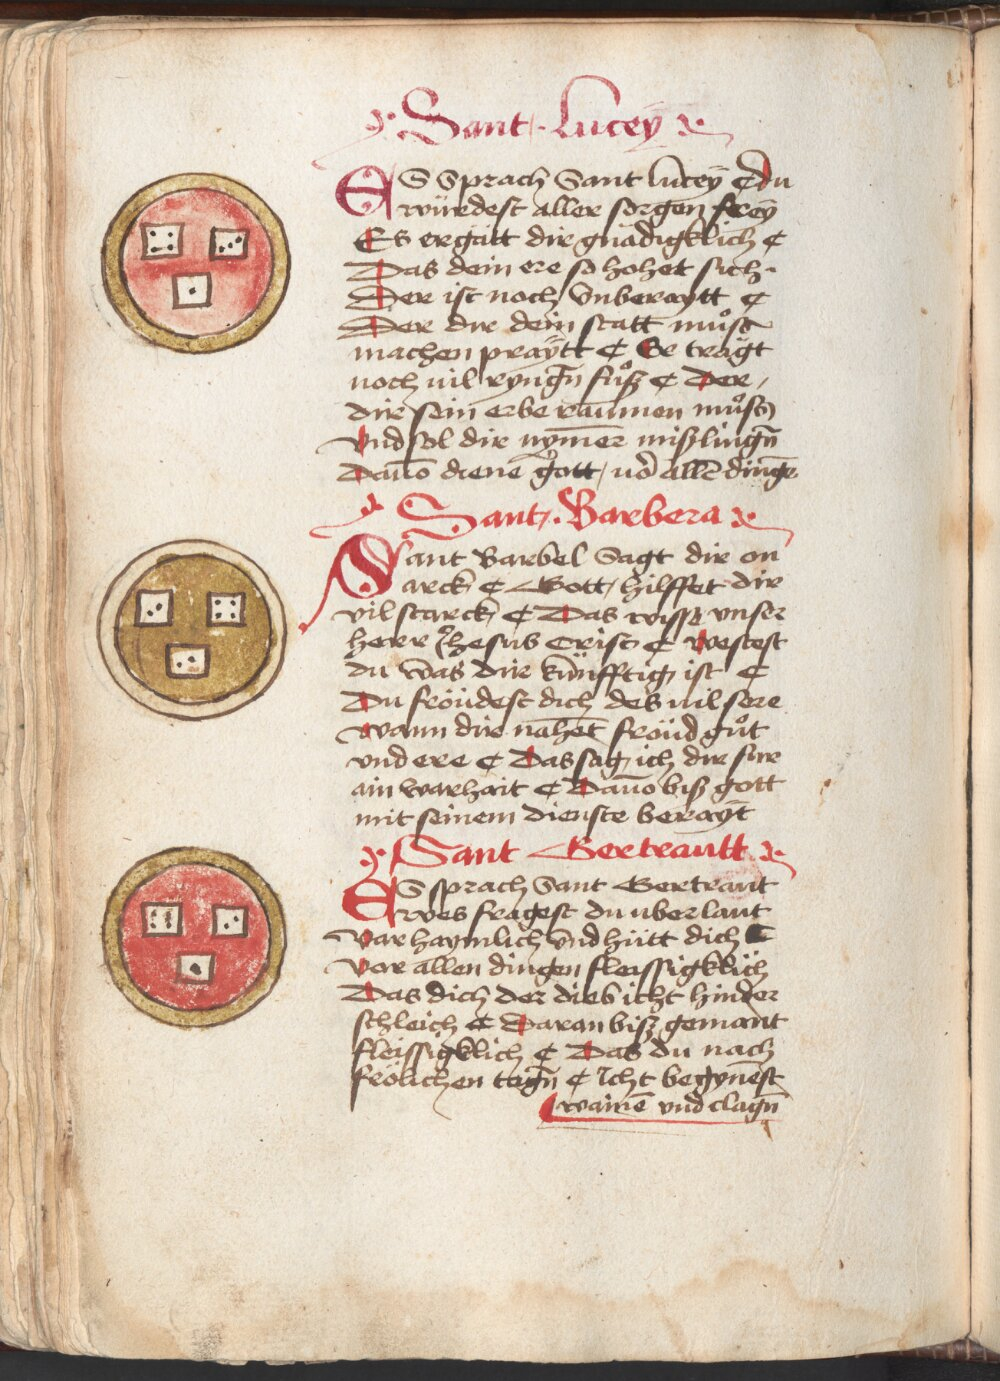 Sant Lucey
ES Sprach Sant lucey ¶ du
würdest aller sorgen frey
Es ergatt dir gnädigklich ¶
Das dein ere so hohet sich
Der ist noch Unberaytt ¶
Der dir dein statt muͦst
machen praÿtt ¶ Er trägt
noch vil ryngñ fuͦß ¶ Der
dir sein erbe raumen muͦsß
vnd sol dir nym̄er mißlingñ
Dauō diene gott vō allē dingē
Sant Barbera
Sant Barbel Sagt dir on
arck ¶ Gott hilffet dir
vil starck ¶ Das wiss vnser
herr Jhesus Crist ¶ westest
du was dir künfftig ist ¶
Du fröudest dich des vil sere
wann dir nahet fröud guͦt
vnd ere ¶ Das sag ich dir fur
ain warhait ¶ Dauō biß gott
mit seinem dienste berayt
Sant Gertrautt
ES sprach Sant Gertraut
wes fragest du uberlaut
var haymlich vnd hütt dich ¶
vor allen dingen fleissigklich
Das dich der dieb icht hinder
schleich ¶ Daran biß gemant
fleissigklich ¶ Das du nach
frölichen tagñ ¶ Icht begynēst
wainē vnd clagñ